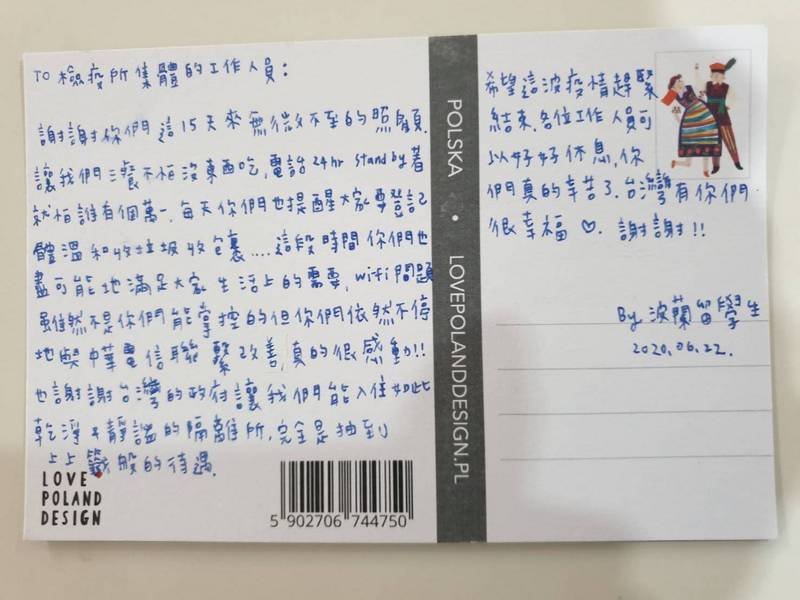 TO 檢疫所集體的工作人員：
謝謝你們這15天來無微不至的照顧，
讓我們三餐不怕沒東西吃，電話24hr stand by著
就怕誰有個萬一，每天你們也提醒大家要登記
體溫和收垃圾收包裹....這段時間你們也
盡可能地滿足大家生活上的需要，wifi問題
雖然不是你們能掌控的但你們依然不停
地與中華電信聯繫改善，真的很感動!!
也謝謝台灣的政府讓我們能入住如此
乾淨&靜謐的隔離所，完全是抽到
上上籤般的待遇。
LOVE
POLAND
DESIGN
5 902706 744750
POLSKA • LOVEPOLANDDESIGN.PL
希望這波疫情趕緊
結束，各位工作人員可
以好好休息，你
們真的辛苦了，台灣有你們
很幸福♡. 謝謝!!
By 波蘭留學生
2020.06.22.